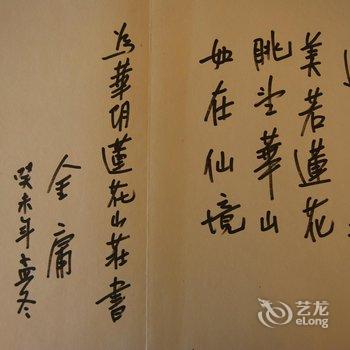 美若蓮花
眺望華山
如在仙境
為華明蓮花山莊書
金庸
癸未年孟冬
艺龙
eLong